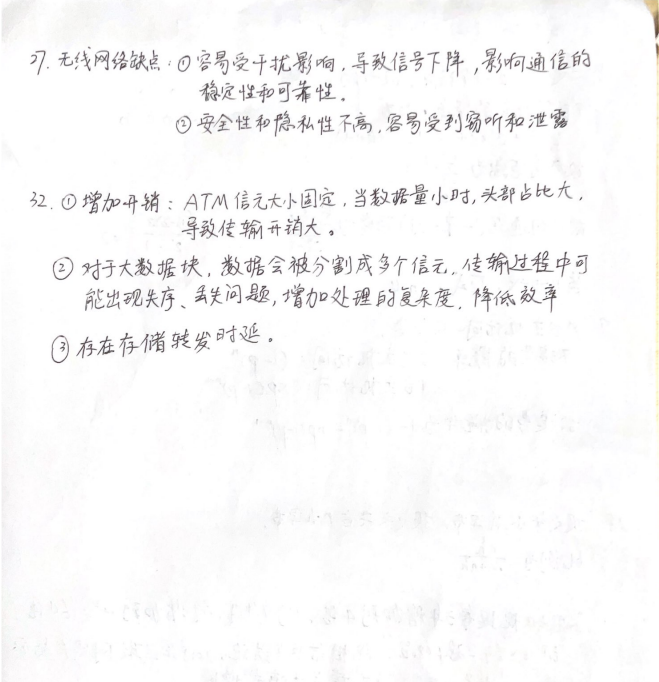 27. 无线网络缺点：① 容易受干扰影响，导致信号下降，影响通信的
稳定性和可靠性。
② 安全性和隐私性不高，容易受到窃听和泄露
32. ① 增加开销：ATM信元大小固定，当数据量小时，头部占比大，
导致传输开销大。
② 对于大数据块，数据会被分割成多个信元，传输过程中可
能出现失序、丢失问题，增加处理的复杂度，降低效率
③ 存在存储转发时延。